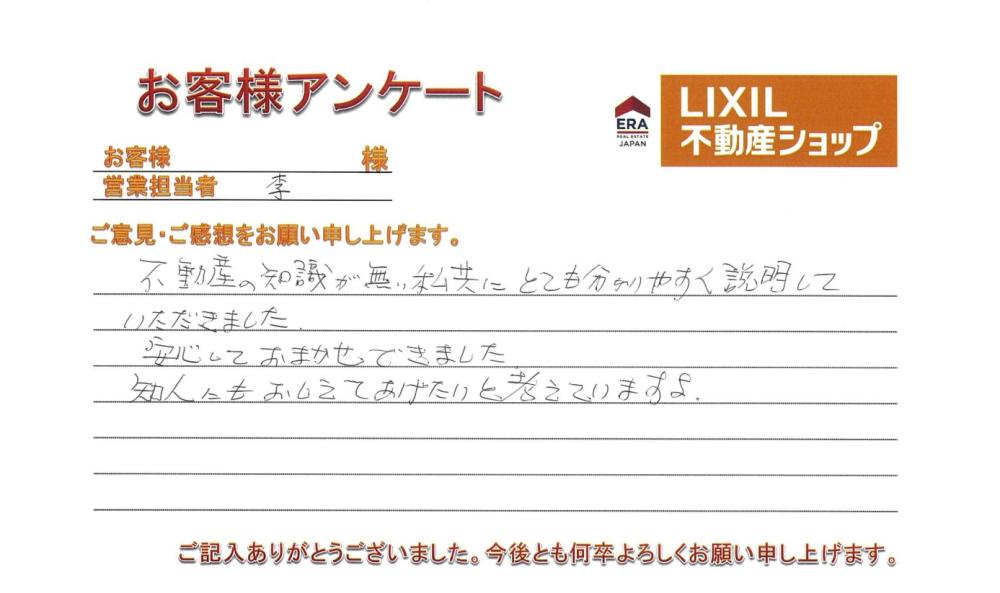 お客様アンケート
ERA
REAL ESTATE
JAPAN
LIXIL
不動産ショップ
お客様 様
営業担当者 李
ご意見・ご感想をお願い申し上げます。
不動産の知識が無い私共にとても分かりやすく説明して
いただきました。
安心しておまかせできました
知人にもおしえてあげたいと考えていますよ。
ご記入ありがとうございました。今後とも何卒よろしくお願い申し上げます。